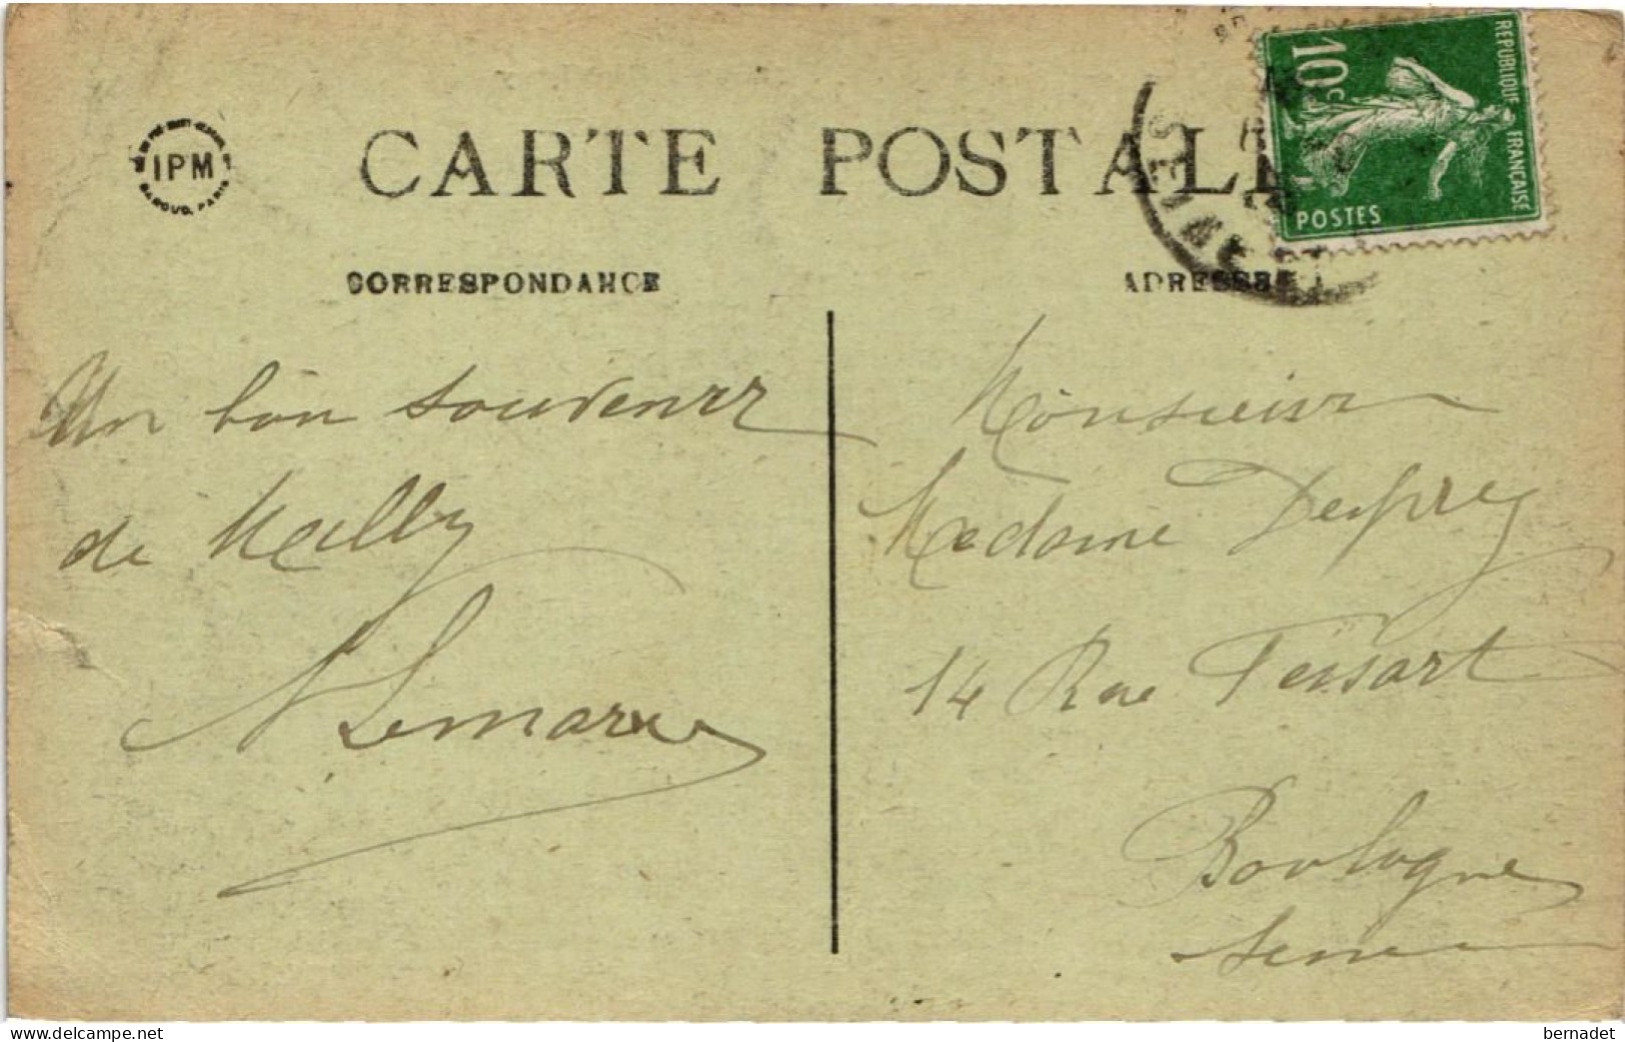 IPM
BAROUD, PARIS
CARTE POSTALE
10c
REPUBLIQUE FRANÇAISE
POSTES
CORRESPONDANCE
ADRESSE
Un bon souvenir
de Mailly
Lemaire
Monsieur
Madame Desprez
14 Rue Teissart
Boulogne
Seine
www.delcampe.net
bernadet